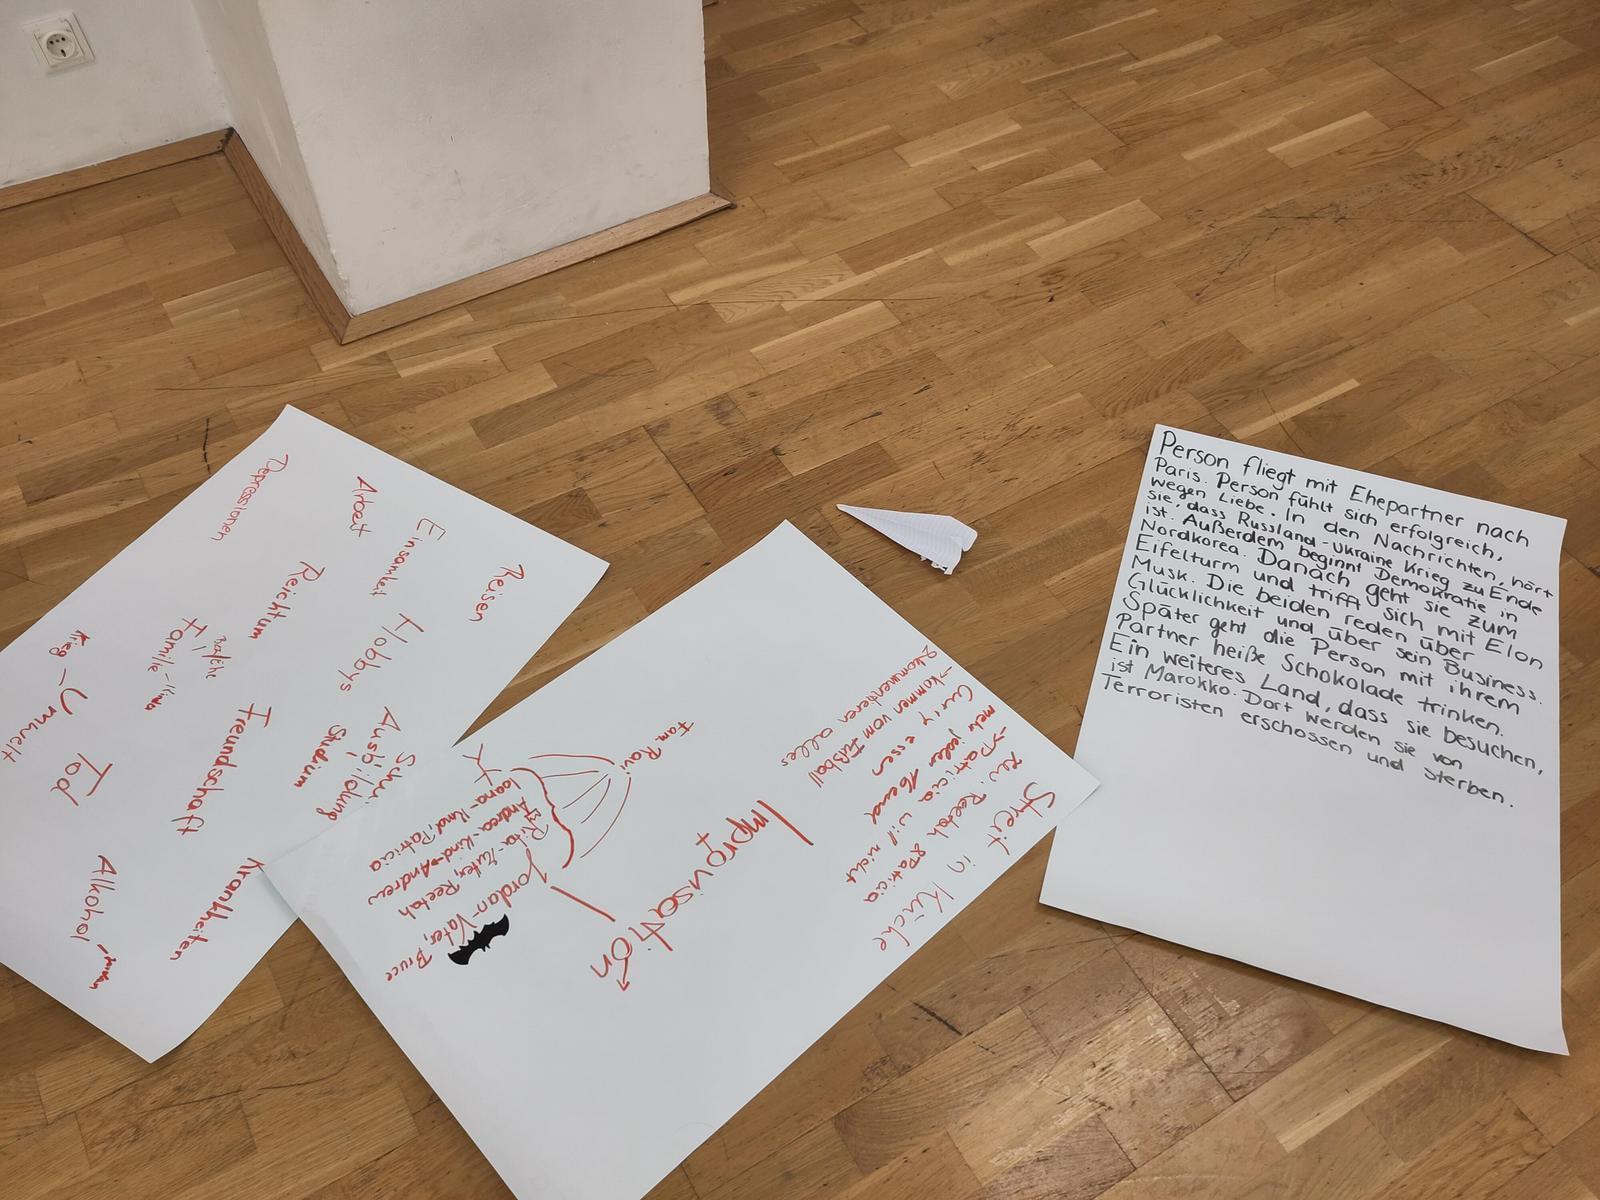 Depressionen
Arbeit
Einsamkeit
Reisen
Reichtum
Hobbys
Familie
Krieg - Umwelt
Freundschaft
Ausbildung
Studium
Tod
Krankheiten
Alkohol
Improvisation
Fam. Ravi
Jordan - Vater, Bruce
Rita - Reetah
Andrea - Kind → Andrew
Ioana - Kind, Patricia
Streit in Küche
zw. Reetah & Patricia
→ Patricia will nicht
mehr jeden Abend
Curry essen
→ kommen vom Fußball
& kommentieren alles
Person fliegt mit Ehepartner nach
Paris. Person fühlt sich erfolgreich,
wegen Liebe. In den Nachrichten, hört
sie, dass Russland-Ukraine Krieg zu Ende
ist. Außerdem beginnt Demokratie in
Nordkorea. Danach geht sie zum
Eifelturm und trifft sich mit Elon
Musk. Die beiden reden über
Glücklichkeit und über sein Business.
Später geht die Person mit ihrem
Partner heiße Schokolade trinken.
Ein weiteres Land, dass sie besuchen,
ist Marokko. Dort werden sie von
Terroristen erschossen und sterben.